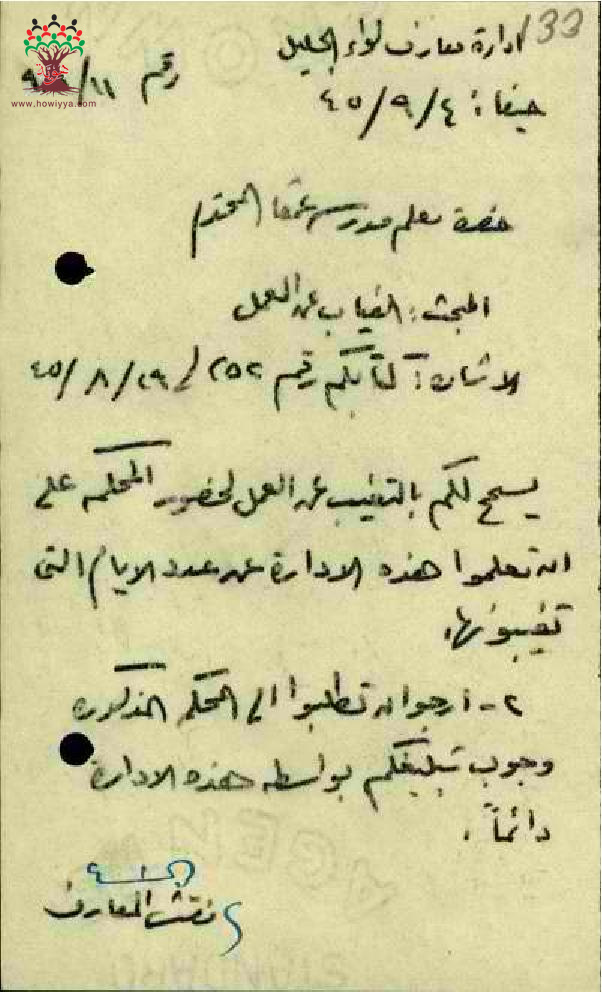 133
ادارة معارف لواء الجليل
رقم ٩/١١
www.howiyya.com
حيفا : ٤٥/٩/٤
حضرة معلم مدرسة عمقا المحترم
المبحث : الغياب عن العمل
الاشارة : كتابكم رقم ٢٥٢ / ٤٥/٨/٢٩
يسمح لكم بالتغيب عن العمل لحضور المحكمه على
ان تعلموا هذه الادارة عن عدد الايام التي
تغيبونها.
٢- ارجو ان تطلبوا الى المحكمه المذكوره
وجوب تبليغكم بواسطه هذه الادارة
دائماً .
مفتش المعارف